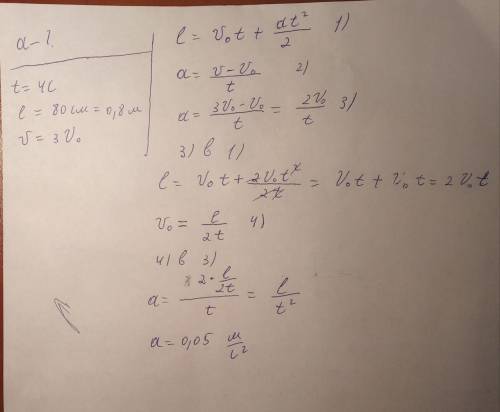 a-?
t = 4c
l = 80 см = 0,8 м
v = 3v₀
l = v₀t + at²/2 1)
a = (v - v₀)/t 2)
a = (3v₀ - v₀)/t = 2v₀/t 3)
3) в 1)
l = v₀t + 2v₀t²/2t = v₀t + v₀t = 2v₀t
v₀ = l/2t 4)
4) в 3)
a = (2 · l/2t)/t = l/t²
a = 0,05 м/с²